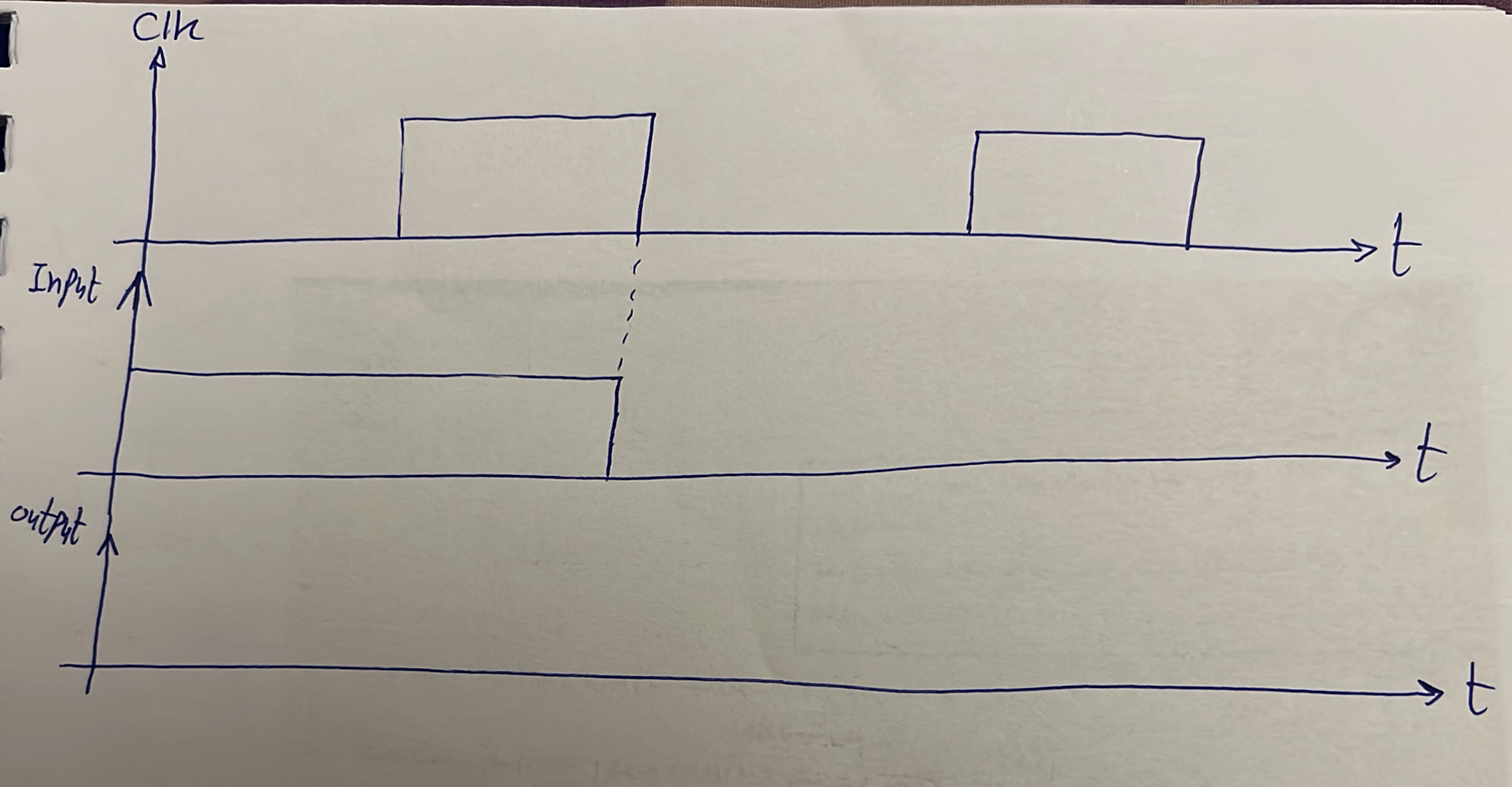 Clk
t
Input
t
output
t